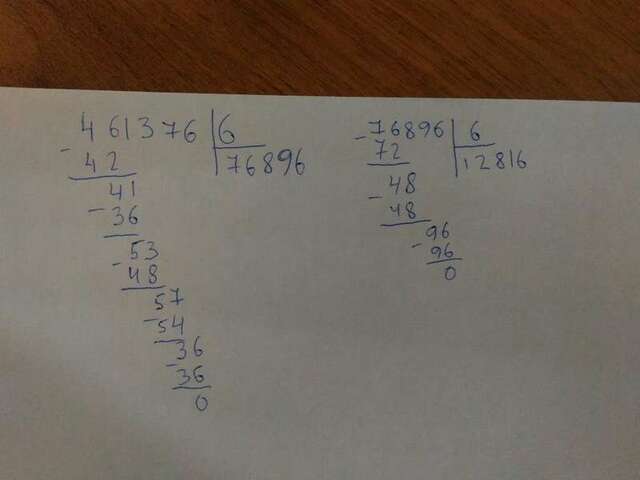 461376 6
- 42 76896
41
- 36
53
- 48
57
- 54
36
- 36
0
- 76896 6
72 12816
48
- 48
96
- 96
0